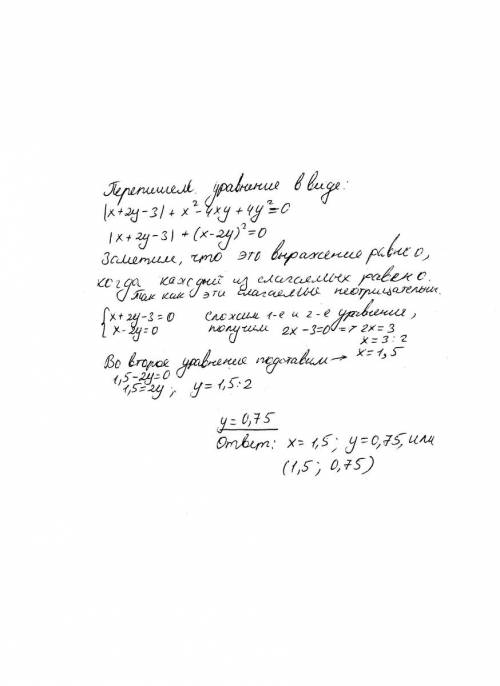 Перепишем уравнение в виде:
|x+2y-3| + x²-4xy+4y²=0
|x+2y-3| + (x-2y)²=0
Заметим, что это выражение равно 0,
когда каждый из слагаемых равен 0.
так как эти слагаемые неотрицательн.
{x+2y-3=0 сложим 1-е и 2-е уравнение,
{x-2y=0 получим 2x-3=0 => 2x=3
x=3:2
Во второе уравнение подставим → x=1,5
1,5-2y=0
1,5=2y; y=1,5:2
y=0,75
Ответ: x=1,5; y=0,75, или
(1,5; 0,75)